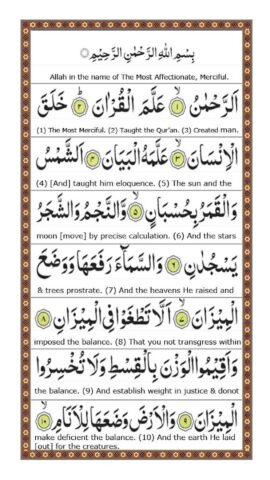 بِسْمِ اللهِ الرَّحْمٰنِ الرَّحِيْمِ
Allah in the name of The Most Affectionate, Merciful.
اَلرَّحْمٰنُ ۙ﴿۱﴾ عَلَّمَ الْقُرْاٰنَ ؕ﴿۲﴾ خَلَقَ
(1) The Most Merciful. (2) Taught the Qur'an. (3) Created man.
الْاِنْسَانَ ۙ﴿۳﴾ عَلَّمَهُ الْبَيَانَ ﴿۴﴾ اَلشَّمْسُ
(4) [And] taught him eloquence. (5) The sun and the
وَالْقَمَرُ بِحُسْبَانٍ ۪﴿۵﴾ وَّالنَّجْمُ وَالشَّجَرُ
moon [move] by precise calculation. (6) And the stars
يَسْجُدٰنِ ﴿۶﴾ وَالسَّمَآءَ رَفَعَهَا وَوَضَعَ
& trees prostrate. (7) And the heavens He raised and
الْمِيْزَانَ ۙ﴿۷﴾ اَلَّا تَطْغَوْا فِى الْمِيْزَانِ ﴿۸﴾
imposed the balance. (8) That you not transgress within
وَاَقِيْمُوا الْوَزْنَ بِالْقِسْطِ وَلَا تُخْسِرُوا
the balance. (9) And establish weight in justice & donot
الْمِيْزَانَ ﴿۹﴾ وَالْاَرْضَ وَضَعَهَا لِلْاَنَامِ ۙ﴿۱۰﴾
make deficient the balance. (10) And the earth He laid
[out] for the creatures.